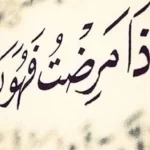 ذَا مَرِضْتُ فَهُوَ